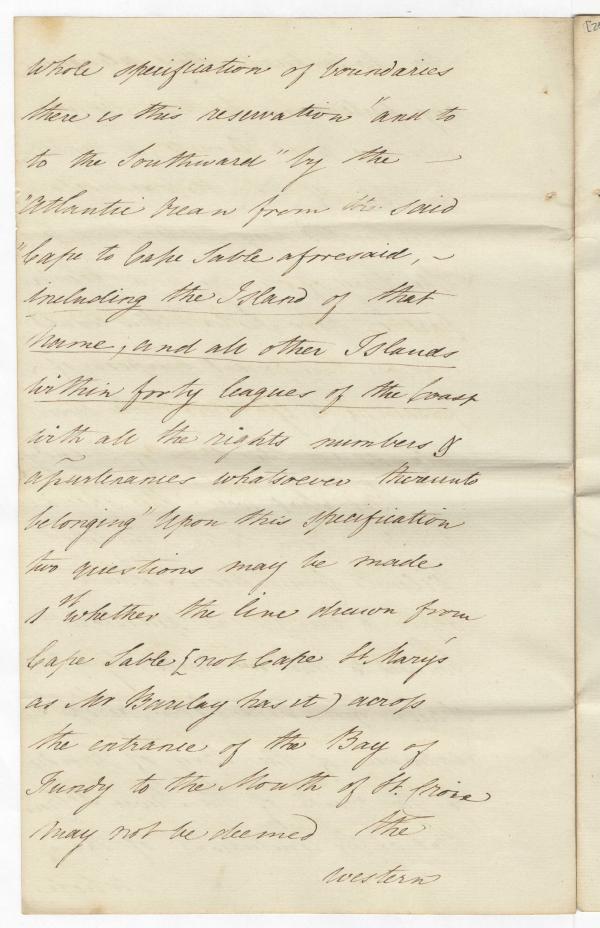 whole specification of boundaries
there is this reservation "and to
to the Southward" by the —
"Atlantic Ocean from the said
"Cape to Cape Sable aforesaid, –
including the Island of that
name, and all other Islands
within forty leagues of the Coast
with all the rights members &
apurtenances whatsoever thereunto
belonging" Upon this specification
two questions may be made
1st whether the line drawn from
Cape Sable [not Cape St. Mary's
as Mr Barclay has it) across
the entrance of the Bay of
Fundy to the Mouth of St. Croix
may not be deemed the
western